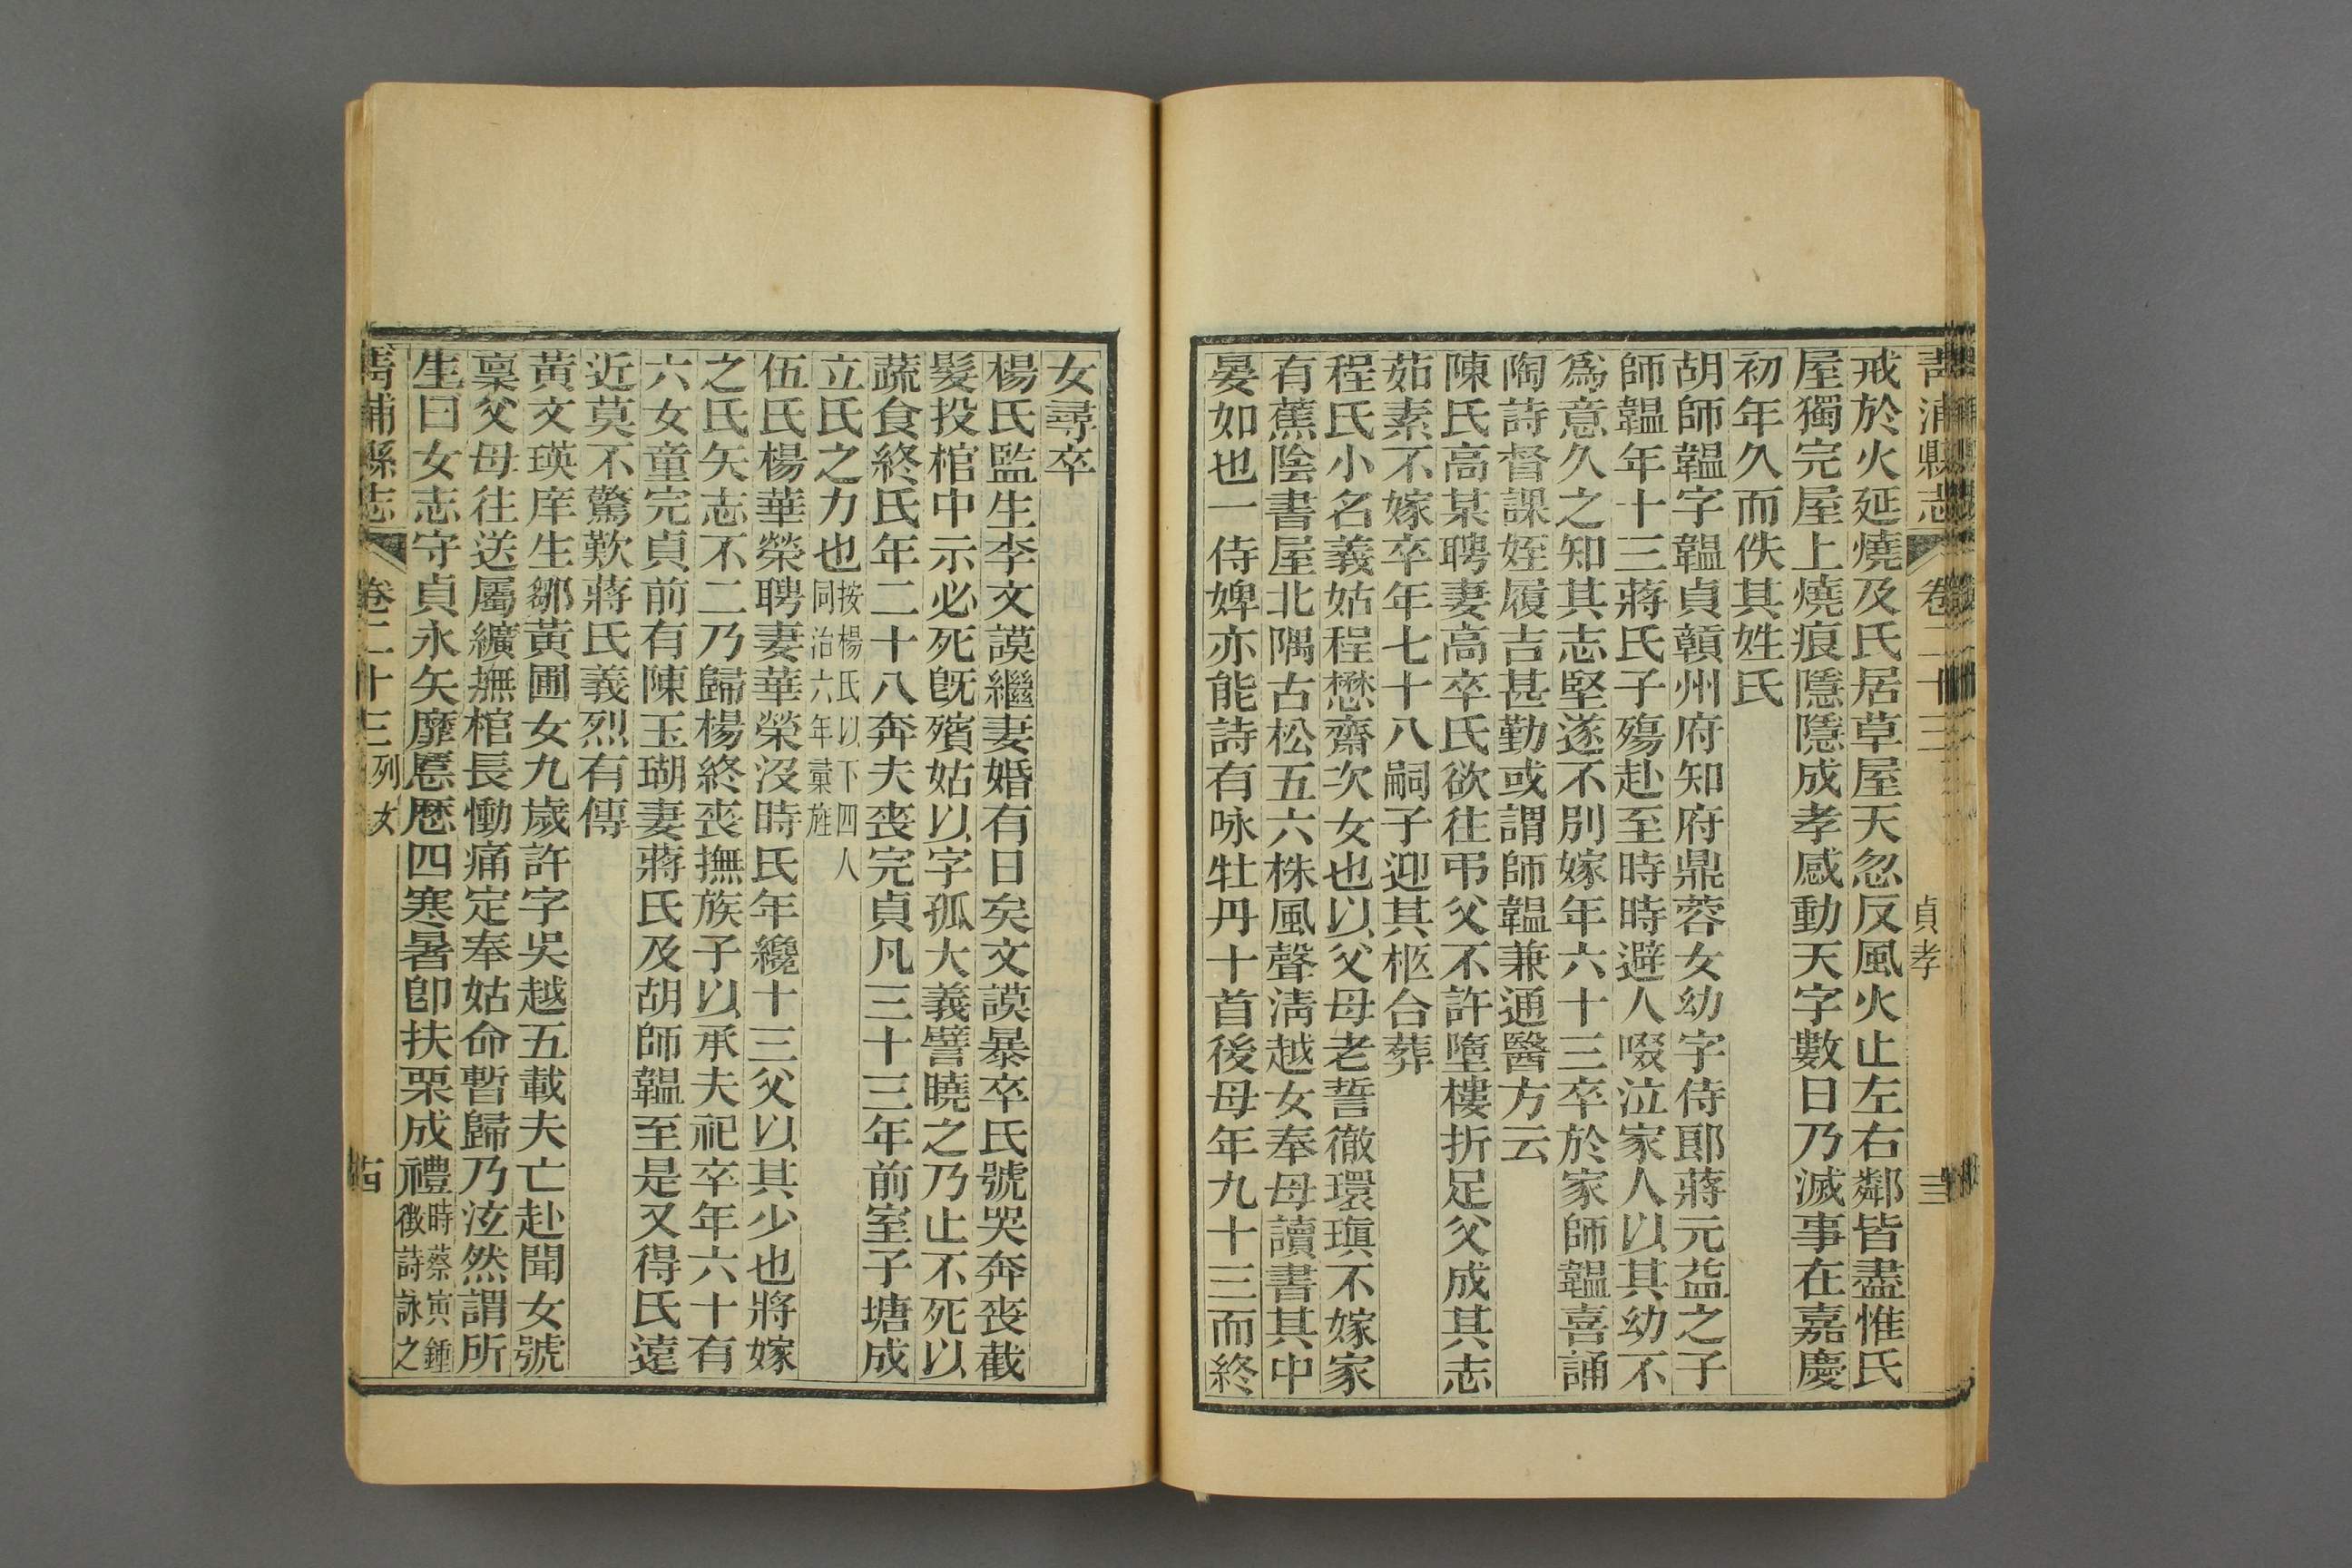 青浦縣志 卷二十三 貞孝
戒於火延燒及氏居草屋天忽反風火止左右鄰皆盡惟氏
屋獨完屋上燒痕隱隱成孝感動天字數日乃滅事在嘉慶
初年久而佚其姓氏
胡師韞字韞貞贛州府知府鼎蓉女幼字侍郎蔣元益之子
師韞年十三蔣氏子殤赴至時時避人啜泣家人以其幼不
爲意久之知其志堅遂不別嫁年六十三卒於家師韞喜誦
陶詩督課姪履吉甚勤或謂師韞兼通醫方云
陳氏高某聘妻高卒氏欲往弔父不許墮樓折足父成其志
茹素不嫁卒年七十八嗣子迎其柩合葬
程氏小名義姑程懋齋次女也以父母老誓徹環瑱不嫁家
有蕉陰書屋北隅古松五六株風聲清越女奉母讀書其中
晏如也一侍婢亦能詩有咏牡丹十首後母年九十三而終
女尋卒
楊氏監生李文謨繼妻婚有日矣文謨暴卒氏號哭奔喪截
髮投棺中示必死旣殯姑以字孤大義譬曉之乃止不死以
蔬食終氏年二十八奔夫喪完貞凡三十三年前室子塘成
立氏之力也按楊氏以下四人同治六年彙旌
伍氏楊華榮聘妻華榮沒時氏年纔十三父以其少也將嫁
之氏矢志不二乃歸楊終喪撫族子以承夫祀卒年六十有
六女童完貞前有陳玉瑚妻蔣氏及胡師韞至是又得氏遠
近莫不驚歎蔣氏義烈有傳
黃文瑛庠生鄒黃圃女九歲許字吳越五載夫亡赴聞女號
稟父母往送屬纊撫棺長慟痛定奉姑命暫歸乃泫然謂所
生曰女志守貞永矢靡慝歷四寒暑卽扶栗成禮時蔡寅鍾徵詩詠之
青浦縣志 卷二十三列女